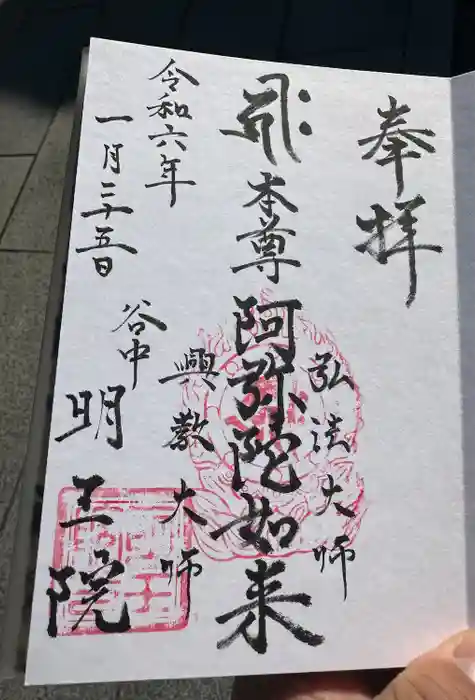 奉拝
弘法大師
本尊 阿弥陀如来
興教大師
令和六年
一月二十五日
谷中
明王院